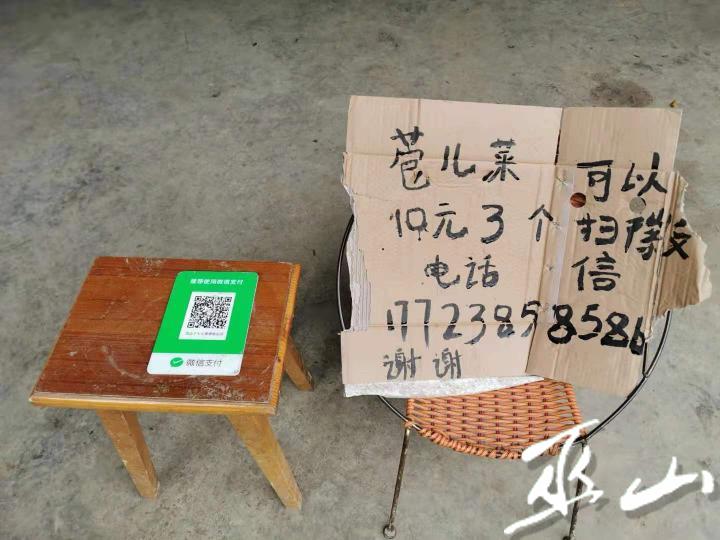 推荐使用微信支付
微信支付
苞儿菜
10元3个
电话
17723858586
谢谢
可以
扫微
信
巫山